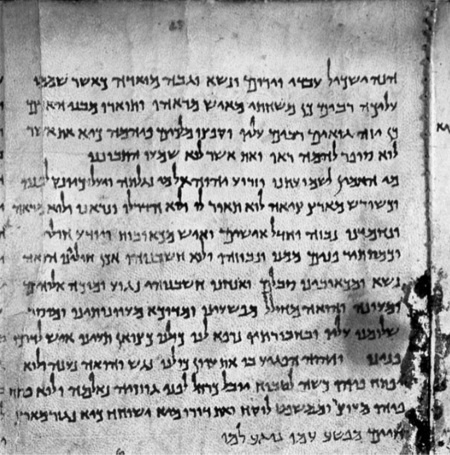 הנה ישכיל עבדי וירום ונשא וגבה מואדה כאשר שממו
עליכה רבים כן משחתי מאיש מראהו ותוארו מבני האדם
כן יזה גואים רבים עליו וקפצו מלכים פיהמה כיא את אשר
לוא סופר להמה ראו ואת אשר לוא שמעו התבוננו
מי האמין לשמועתנו וזרוע יהוה אל מי נגלתה ויעל כיונק לפניו
וכשורש מארץ ציה לוא תואר לו ולוא הדר לו ונראנו ולוא מראה
ונחמדנו נבזה וחדל אישים ואיש מכאובות ויודע חולי
וכמסתיר פנים ממנו ונבוזהו ולוא חשבנוהו אכן חוליינו הואה
נשא ומכאובינו סבלם ואנחנו חשבנוהו נגוע ומוכה אלוהים
ומעונה והואה מחולל מפשעינו ומדוכא מעוונותינו ומוסר
שלומנו עליו ובחבורתיו נרפא לנו כולנו כצואן תעינו איש לדרכו
פנינו ויהוה הפגיע בו את עוון כולנו נגש והואה נענה ולוא
יפתח פיהו כשה לטבוח יובל כרחל לפני גוזזיה נאלמה ולוא פתח
פיהו מעוצר וממשפט לוקח ואת דורו מיא ישוחח כיא נגזר מארץ
חיים מפשע עמו נוגע למו